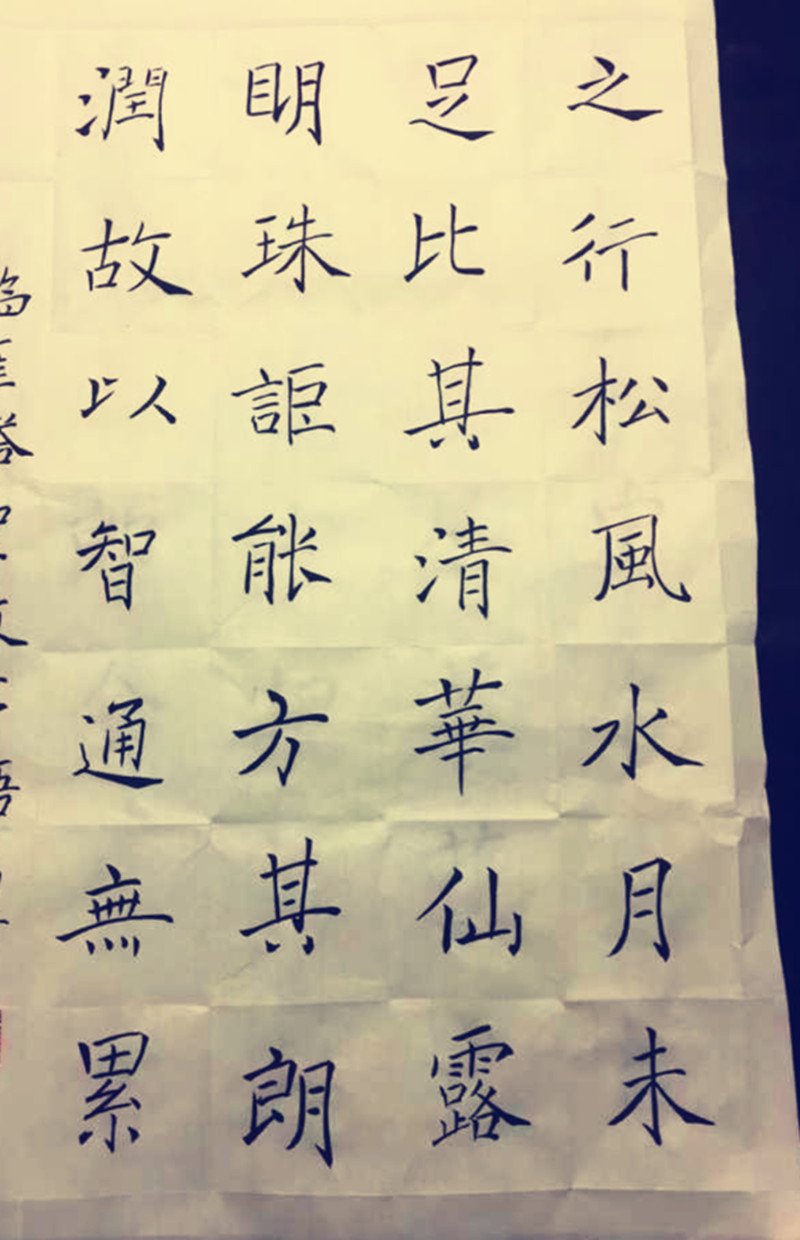 之行松風水月未
足比其清華仙露
明珠詎能方其朗
潤故以智通無累